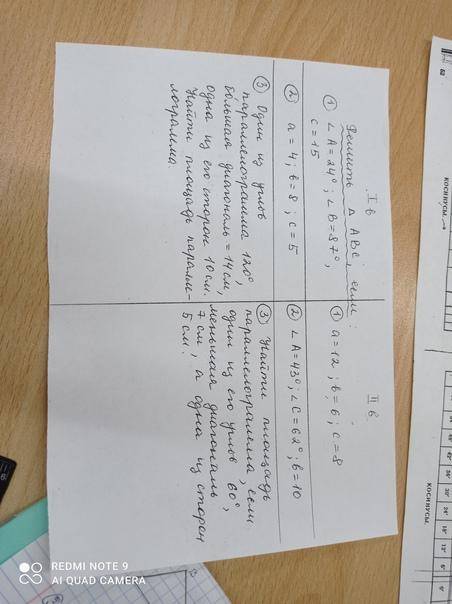 I в
Решить Δ ABC, если:
① ∠A=24°; ∠B=87°,
c=15
② a=4; b=8; c=5
③ Один из углов
параллелограмма 120°,
большая диагональ = 14см,
одна из его сторон 10см.
Найти площадь паралле-
лограмма.
II в
① a=12; b=6; c=8
② ∠A=43°; ∠C=62°; b=10
③ Найти площадь
параллелограмма, если
один из его углов 60°,
меньшая диагональ
7 см, а одна из сторон
5 см.
КОСИНУСЫ
КОСИНУСЫ.
62
REDMI NOTE 9
AI QUAD CAMERA